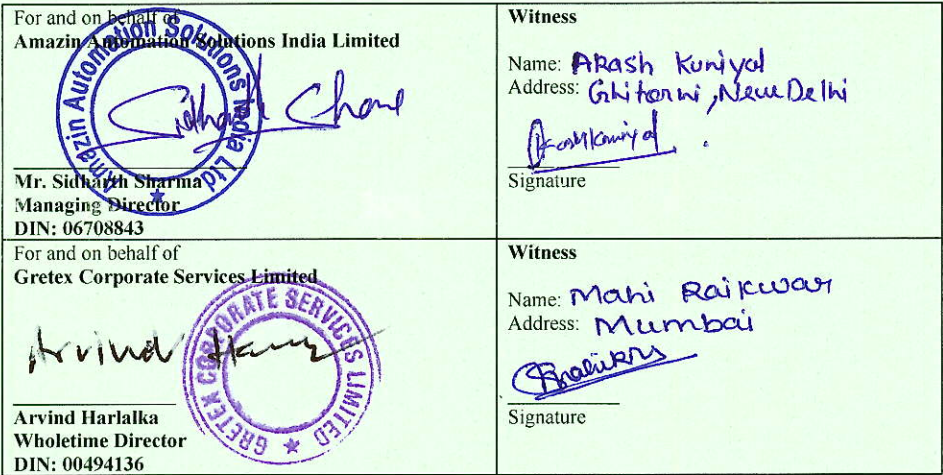 For and on behalf of
Amazin Automation Solutions India Limited
Amazin Automation Solutions India Ltd
Mr. Sidharth Sharma
Managing Director
DIN: 06708843
Witness
Name: Akash Kuniyal
Address: Ghitorni, New Delhi
Akash Kuniyal
Signature
For and on behalf of
Gretex Corporate Services Limited
GRETEX CORPORATE SERVICES LIMITED
Arvind
Arvind Harlalka
Wholetime Director
DIN: 00494136
Witness
Name: Mahi Raikwar
Address: Mumbai
Signature